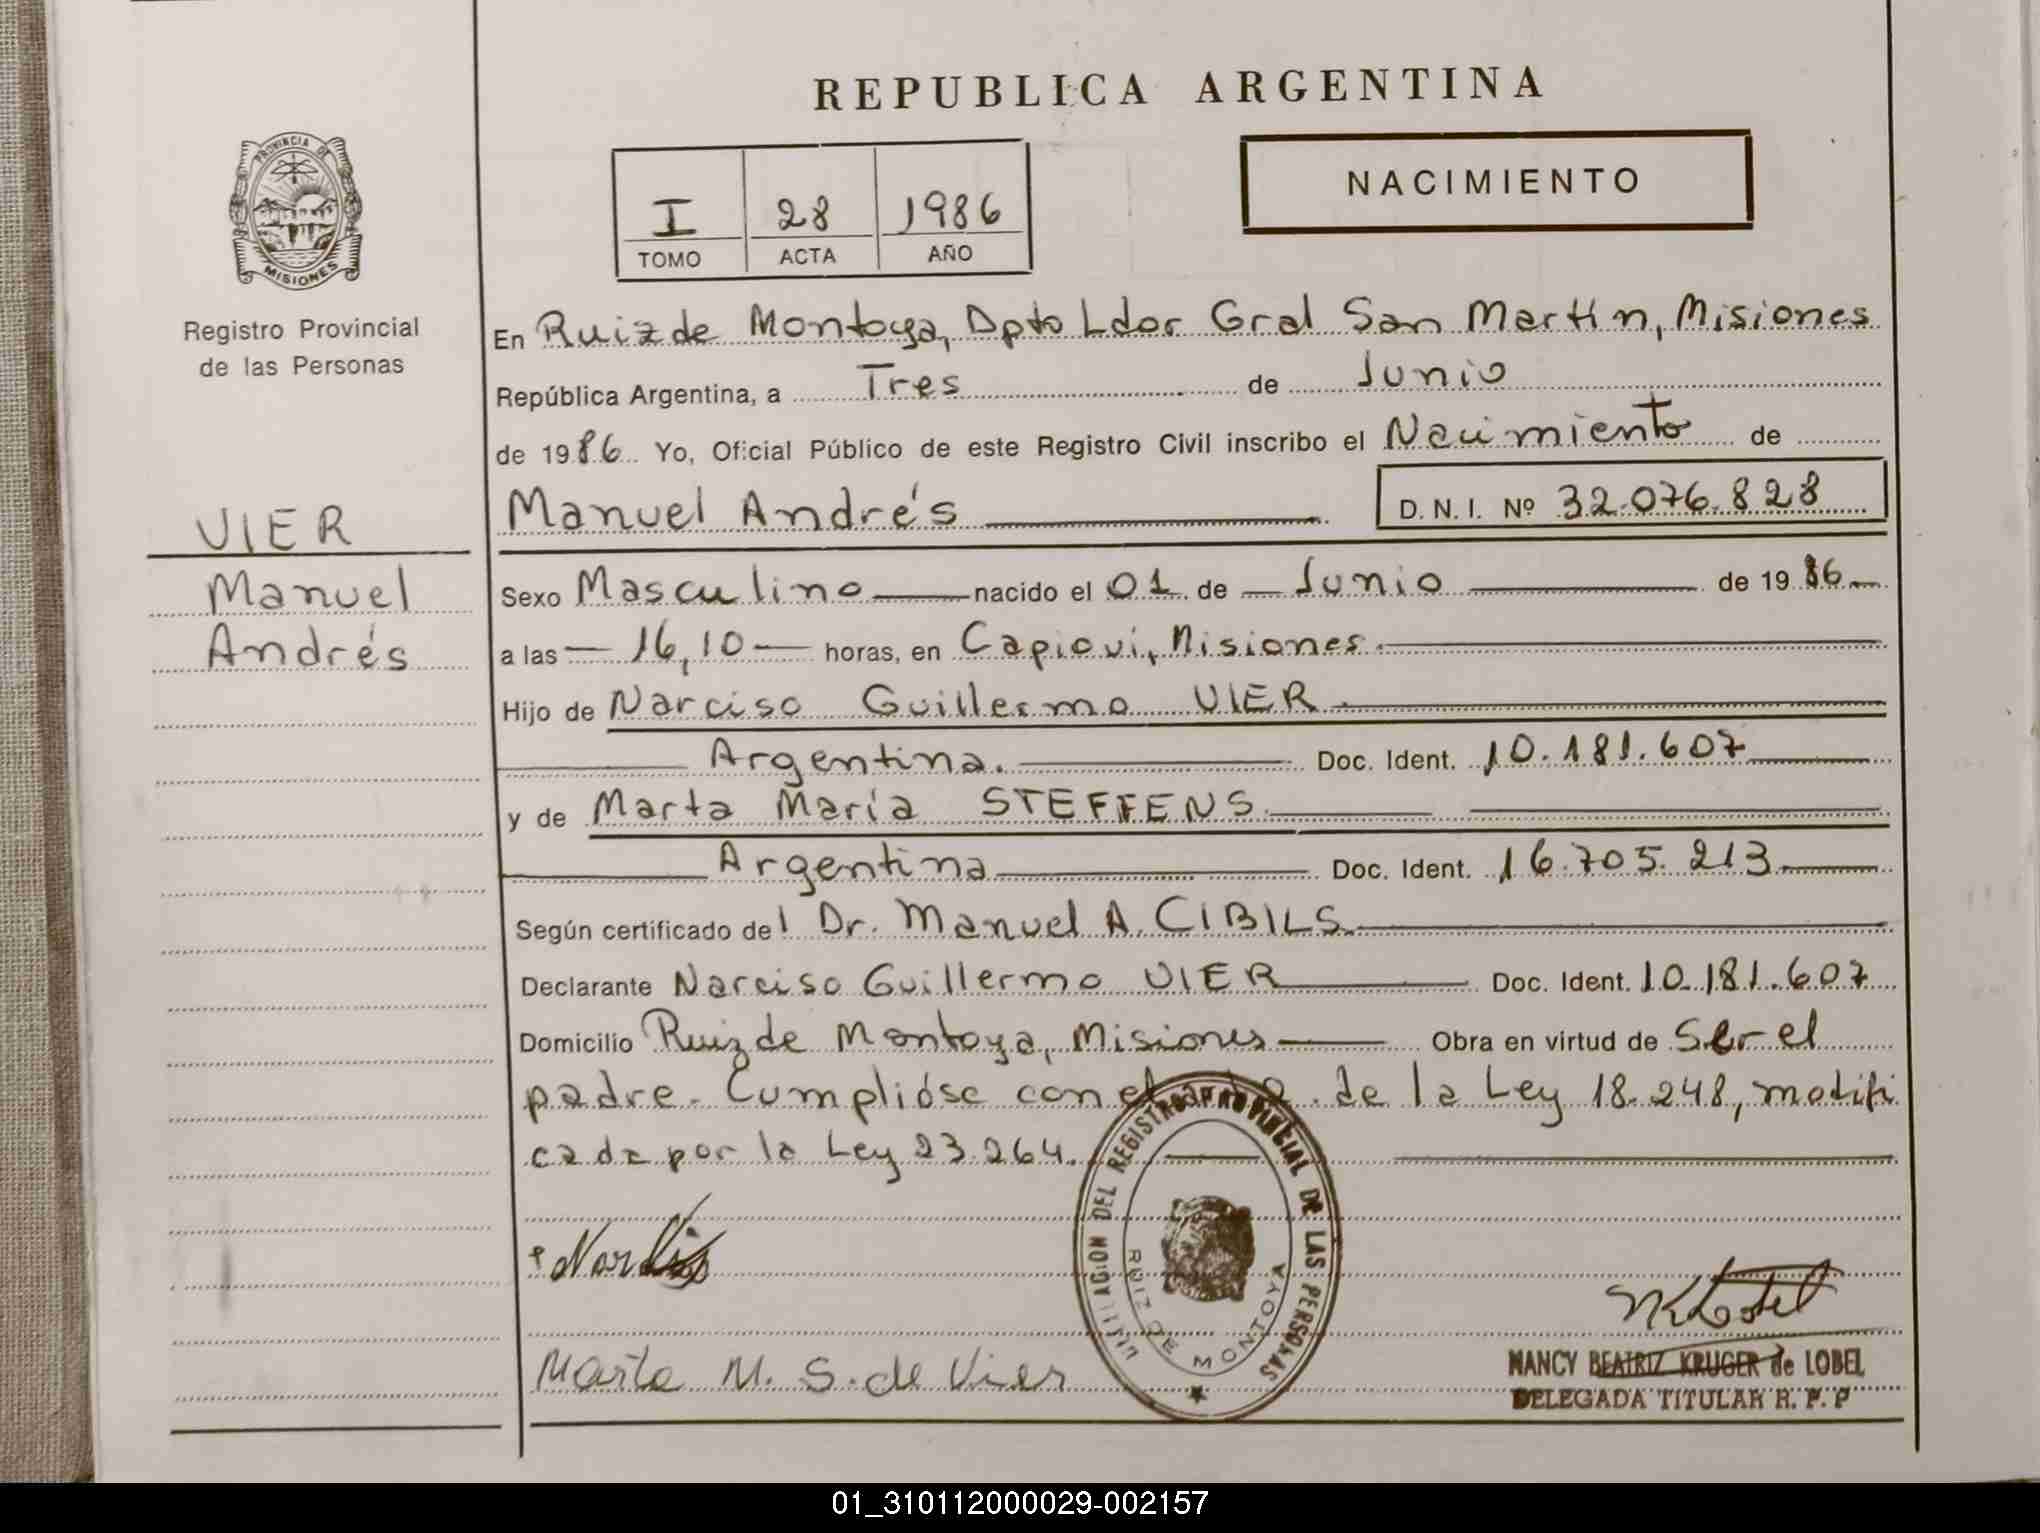 REPUBLICA ARGENTINA
PROVINCIA DE
MISIONES
Registro Provincial
de las Personas
I 28 1986
TOMO ACTA AÑO
NACIMIENTO
En Ruiz de Montoya, Dpto Ldor Gral San Martin, Misiones
República Argentina, a Tres de Junio
de 1986 Yo, Oficial Público de este Registro Civil inscribo el Nacimiento de
Manuel Andrés D. N. I. Nº 32.076.828
VIER
Manuel
Andrés
Sexo Masculino nacido el 01 de Junio de 1986
a las 16,10 horas, en Capioví, Misiones
Hijo de Narciso Guillermo VIER
Argentina. Doc. Ident. 10.181.607
y de Marta María STEFFENS
Argentina Doc. Ident. 16.705.213
Según certificado del Dr. Manuel A. CIBILS
Declarante Narciso Guillermo VIER Doc. Ident. 10.181.607
Domicilio Ruiz de Montoya, Misiones Obra en virtud de Ser el
padre. Cumplióse con el de la Ley 18.248, modifi
cada por la Ley 23.264.
DEL REGISTRO PROVINCIAL DE LAS PERSONAS
RUIZ DE MONTOYA
Marta M. S. de Vier
NANCY BEATRIZ KRUGER de LOBEL
DELEGADA TITULAR R. P. P
01_310112000029-002157